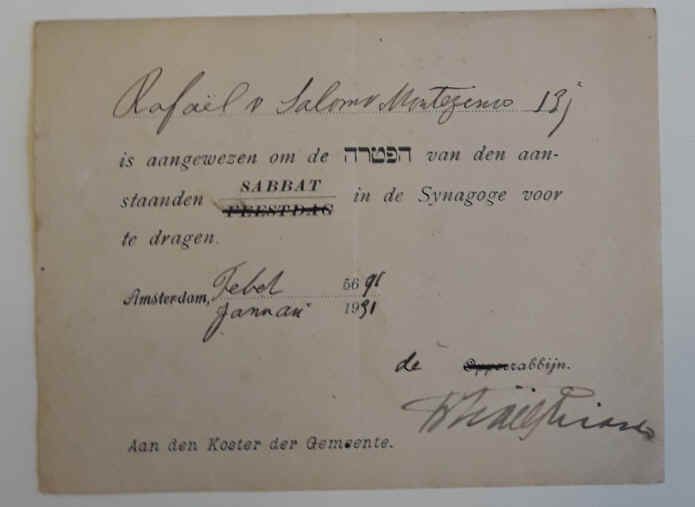 Rafaël v Salomo Montezinos 13j
is aangewezen om de הפטרה van den aan-
staanden SABBAT
FEESTDAG in de Synagoge voor
te dragen.
Amsterdam, Tebet 5691
Januari 1931
de Opperrabbijn.
Aan den Koster der Gemeente.